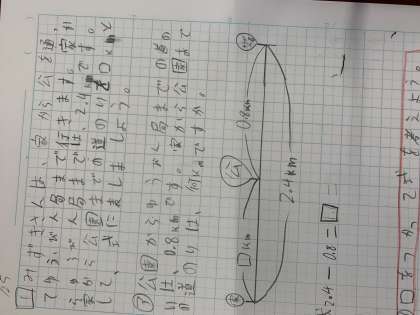 1 みずきさんは、家から公園を通
ってゆうびん局まで行きます。家か
らゆうびん局までは、2.4kmです。
家から公園までの道のりを□kmと
して、式に
③ 公園からゆうびん局までの道の
りは、0.8kmです。家から公園まで
の道のりは、何kmですか。
家 □km 公 0.8km
2.4km
2.4-0.8=□